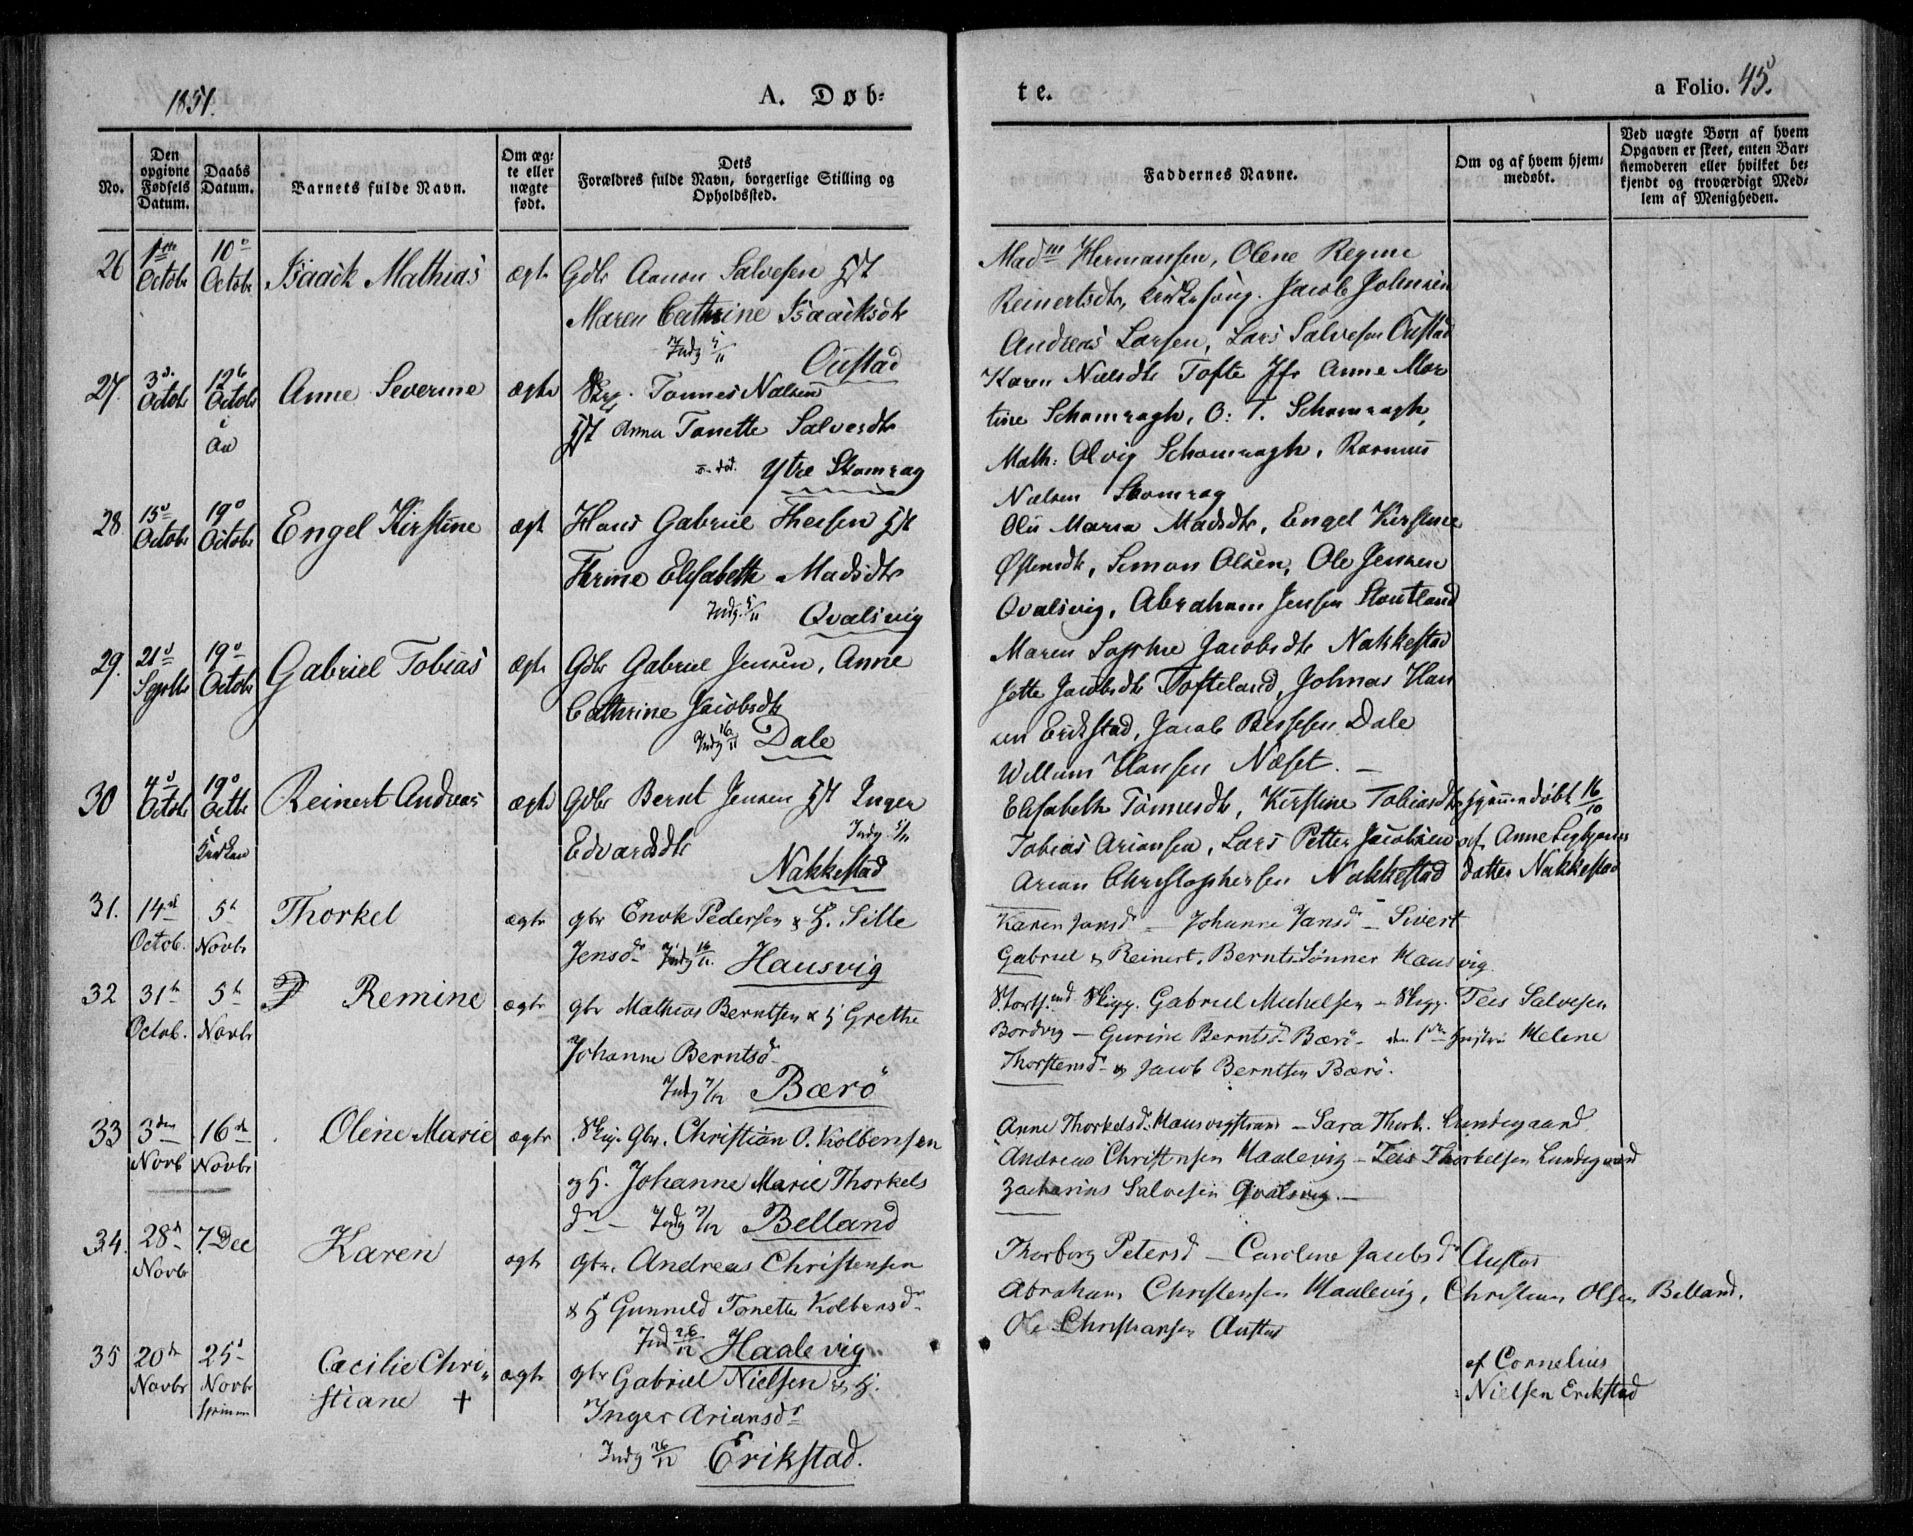 1851.
A. Døb-
te.
a Folio. 45.
No.
Den opgivne Fødsels Datum.
Daabs Datum.
Barnets fulde Navn.
Om ægte eller nægte født.
Dets Forældres fulde Navn, borgerlige Stilling og Opholdssted.
Faddernes Navne.
Om og af hvem hjemmedøbt.
Ved uægte Børn af hvem Opgaven er skeet, enten Barnemoderen eller hvilket bekjendt og troværdigt Medlem af Menigheden.
26 1ste Octobr 10de Octobr Isaack Mathias ægte Gdbr Aanon Salvesen
Maren Cathrine Isaacksdtr
Oustad
Madm Hermansen, Olene Regine
Reinertsdtr, Jacob Johnsen
Andreas Larsen, Lars Salvesen Oustad
27. 3d. Octobr 12te Octobr i Au Anne Severine ægte Tønnes Nielsen
Anna Tonette Salvesdtr
Ytre Skomrag
Karen Nielsdtr Tofte Jfr Anne Mar
tine Schomragh, O: T. Schomragh,
Math: Olvig Schomragh, Rasmus
Nielsen Skomrag
28 15d Octobr 19d Octobr Engel Kirstine ægte Hans Gabriel Theisen
Trine Elisabeth Madsdtr
Indg. 5/11 Qvalsvig
Maria Madsdtr, Engel Kirstine
Østensdtr, Simon Olsen, Ole Jensen
Qvalsvig, Abraham Jensen Stoutland
29. 21d Septbr 19d Octobr Gabriel Tobias ægte Gdbr Gabriel Jensen, Anne
Cathrine Jacobsdtr
Indg 16/11 Dale
Maren Sophie Jacobsdtr Nakkestad
Jette Jacobsdtr Tofteland, Johnas Han
sen Erikstad, Jacob Berthesen Dale
Willum Hansen Næset.
30 4d Octobr 19d Octbr Kirken Reinert Andreas ægte Gdbr Bernt Jensen Inger
Edvardsdtr Indg. 5/11
Nakkestad
Elisabeth Tønnesdtr, Kirstine Tobiasdtr hjemmedøbt 16/10
Tobias Ariansen, Lars Petter Jacobsen af Anne
Arian Christophersen Nakkestad datter Nakkestad
31. 14de Octob. 5t Novbr Thorkel ægte gbr Enok Pedersen & H. Sille
Jensd Indg 16/11 Hausvig
Karen Jansd — Johanne Jansd — Sivert
Gabriel & Reinert, Bernts Sønner Hausvig
32 31t Octob. 5t Novbr Remine ægte gbr Mathias Berntsen & H Grethe
Johanne Berntsd
Indg 7/12 Bærø
Skipp. Gabriel Michelsen — Skipp. Teis Salvesen
Bordvig — Gurine Berntsd Bærø — Helene
Thorstensd & Jacob Berntsen Bærø.
33 3den Novb 16de Novbr Olene Marie ægte Skip. Gbr. Christian O. Kolbensen
og H. Johanne Marie Thorkels
dr — Indg 7/12 Belland
Anne Thorkelsd. Hausvigstrand — Sara Thork. Lundegaard
Andreas Christensen Haalevig — Teis Thorkelsen Lundegaard
Zacharias Salvesen Qvalsvig. —
34. 28d Novb 7. Dec Karen ægte gbr. Andreas Christensen
& H Gunnild Tonette Kolbensd
Ind 26/12 Haalevig
Thorborg Petersd — Caroline Jacobsd Austad
Abraham Christensen Haalevig, Christian Olsen Belland.
Ole Christiansen Austad
35 20de Novbr 25d Novbr Cæcilie Chri-
stiane + ægte gbr Gabriel Nielsen & H.
Inger Ariansdr
Indg 26/12 Erikstad.
af Cornelius
Nielsen Erikstad